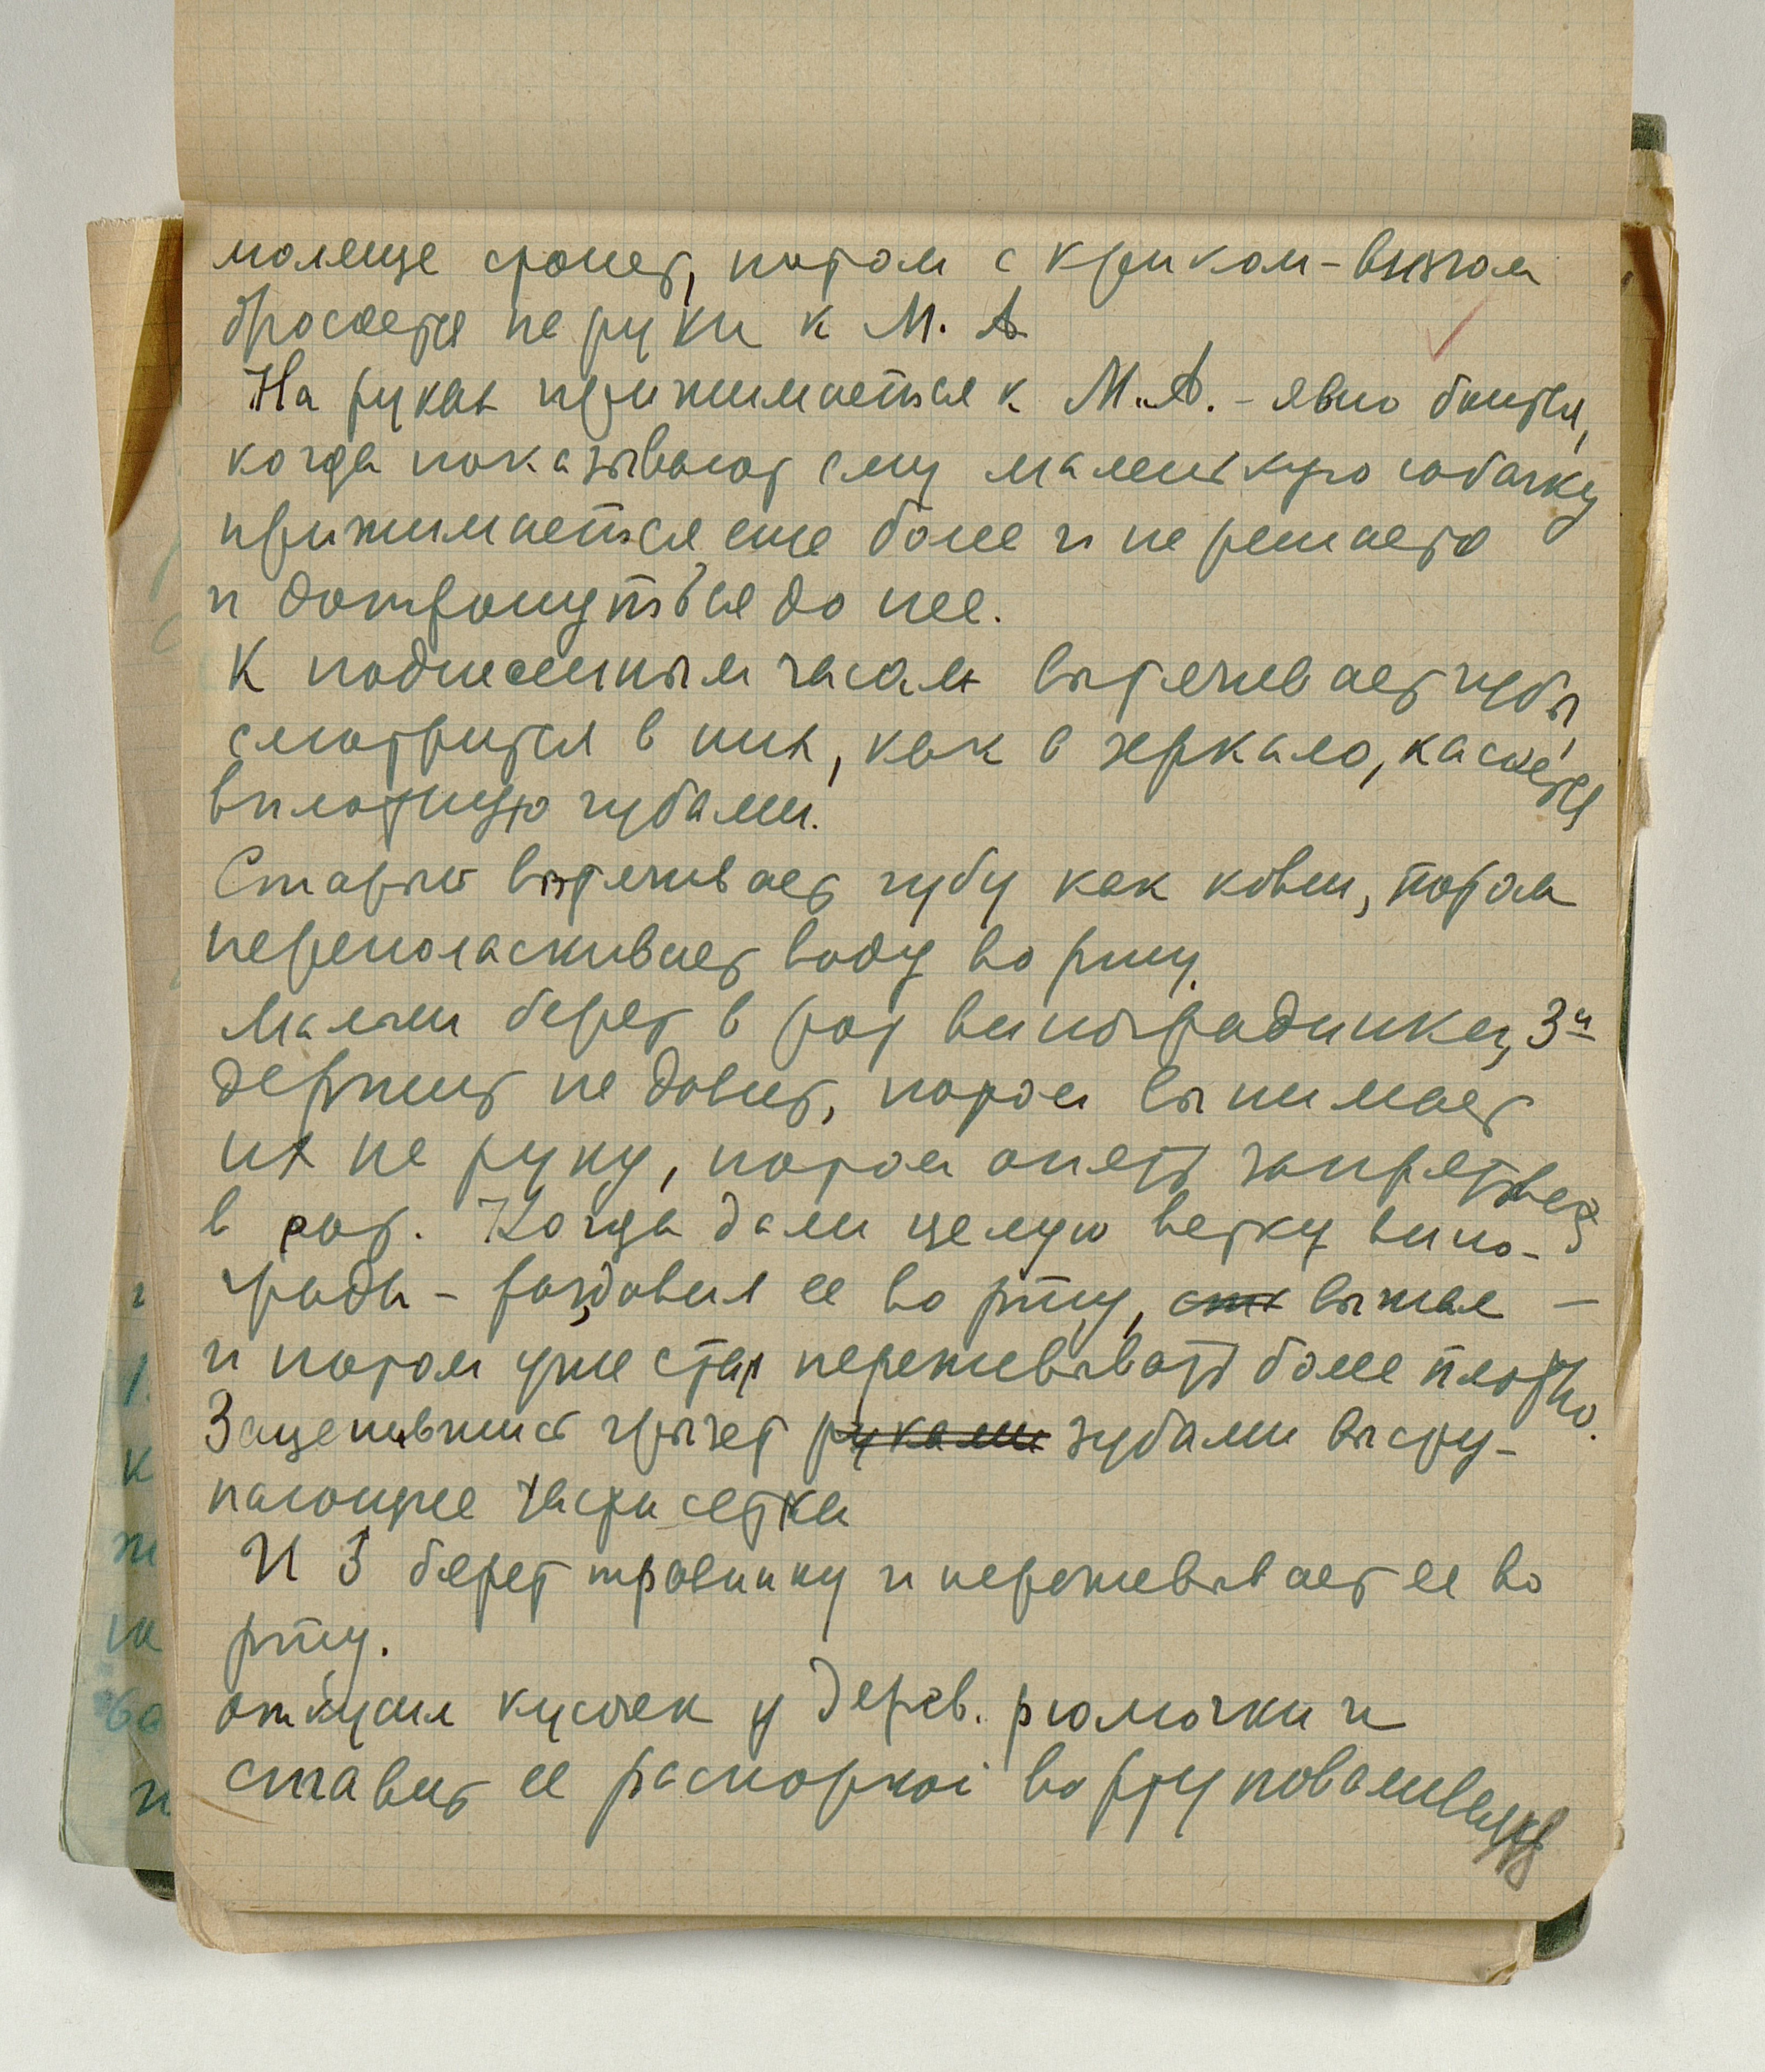 молеще стонет, потом с криком-визгом
бросается на руки к М. А.
На руках прижимается к М.А. - явно боится,
когда показывают ему маленькую собачку
прижимается еще более и не решается
и дотронуться до нее.
К поднесенным часам вытягивает губы,
смотрится в них, как в зеркало, касается
вплотную губами.
Старый вытягивает губу как ковш, потом
переполаскивает воду во рту.
Малыш берет в рот виноградинки, 3 ш
держит не давит, потом вынимает
их на руку, потом опять запрятывает
в рот. Когда дали целую ветку вино-
града - раздавил ее во рту, выжал -
и потом уже стал пережевывать более плотно.
Зацепившись грызет руками зубами высту-
пающие части сетки
И З берет травинку и пережевывает ее во
рту.
откусил кусочек у дерев. рюмочки и
ставит ее распоркой во рту поваливая